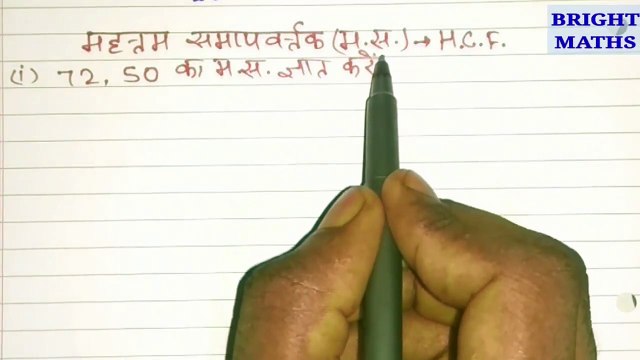 BRIGHT
MATHS
महत्तम समापवर्त्तक (म.स.) → H.C.F.
(i) 72, 50 का म.स. ज्ञात करें